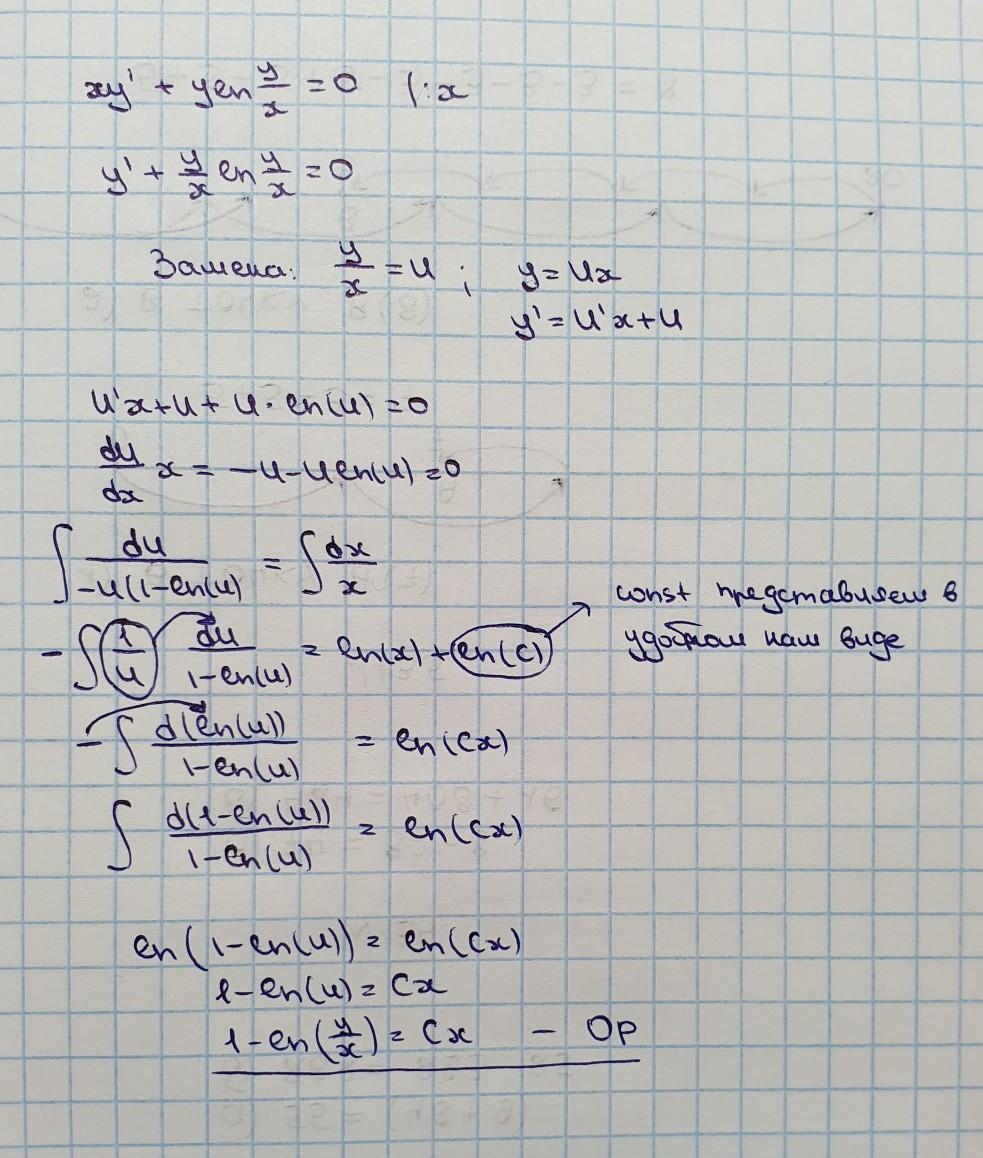 xy' + y ln y/x = 0 |:x
y' + y/x ln y/x = 0
Замена: y/x = u ; y = ux
y' = u'x + u
u'x + u + u · ln(u) = 0
du/dx x = -u - u ln(u) = 0
∫ du/(-u(1-ln(u)) = ∫ dx/x
const представляем в
удобном нам виде
-∫ 1/u du/(1-ln(u)) = ln(x) + ln(c)
-∫ d(ln(u))/(1-ln(u)) = ln(cx)
∫ d(1-ln(u))/(1-ln(u)) = ln(cx)
ln(1-ln(u)) = ln(cx)
1-ln(u) = cx
1-ln(y/x) = cx – ОР